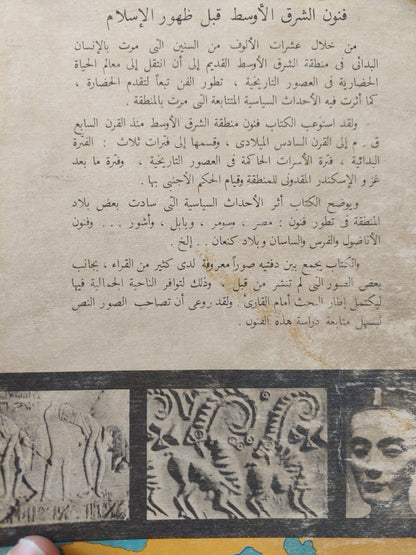 فنون الشرق الأوسط قبل ظهور الإسلام
من خلال عشرات الألوف من السنين التى مرت بالإنسان
البدائى فى منطقة الشرق الأوسط القديم إلى أن انتقل إلى معالم الحياة
الحضارية فى العصور التاريخية ، تطور الفن تبعاً لتقدم الحضارة ،
كما أثرت فيه الأحداث السياسية المتتابعة التى مرت بالمنطقة .
ولقد استوعب الكتاب فنون منطقة الشرق الأوسط منذ القرن السابع
ق . م إلى القرن السادس الميلادى ، وقسمها إلى فترات ثلاث : الفترة
البدائية ، فترة الأسرات الحاكمة فى العصور التاريخية ، وفترة ما بعد
غزو الإسكندر المقدونى للمنطقة وقيام الحكم الأجنبى بها .
ويوضح الكتاب أثر الأحداث السياسية التى سادت بعض بلاد
المنطقة فى تطور فنون : مصر ، وسومر ، وبابل ، وأشور . . . وفنون
الأناضول والفرس والساسان وبلاد كنعان . . إلخ .
والكتاب يجمع بين دفتيه صوراً معروفة لدى كثير من القراء ، بجانب
بعض الصور التى لم تنشر من قبل ، وذلك لتوافر الناحية الجمالية فيها
ليكتمل إطار البحث أمام القارئ . ولقد روعى أن تصاحب الصور النص
ليسهل متابعة دراسة هذه الفنون .